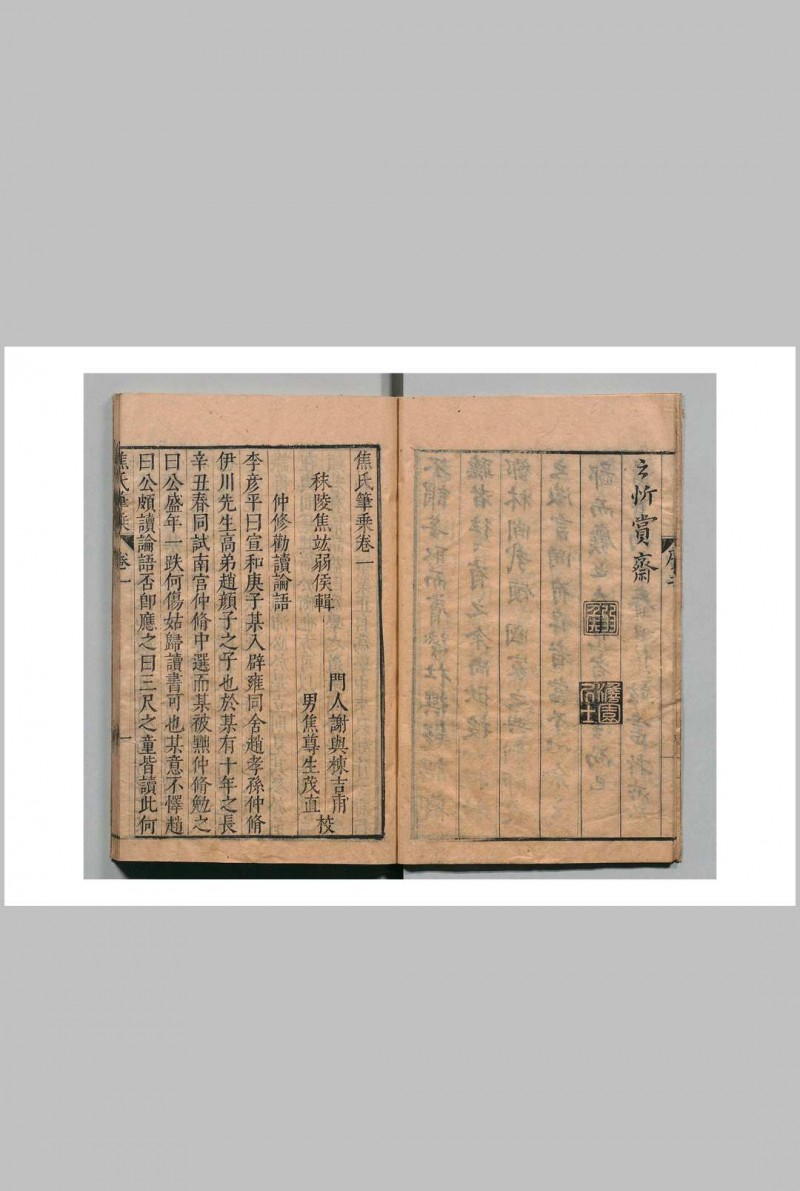 之忻賞齋
焦氏筆乘卷一
秣陵焦竑弱侯輯
門人謝與棟吉甫
男焦尊生茂直
校
仲修勸讀論語
李彦平曰宣和庚子某入辟雍同舍趙孝孫仲脩
伊川先生高弟趙顏子之子也於某有十年之長
辛丑春同試南宫仲脩中選而某被黜仲脩勉之
曰公盛年一跌何傷姑歸讀書可也某意不懌趙
曰公頗讀論語否卽應之曰三尺之童皆讀此何
焦氏筆乘
卷一
一